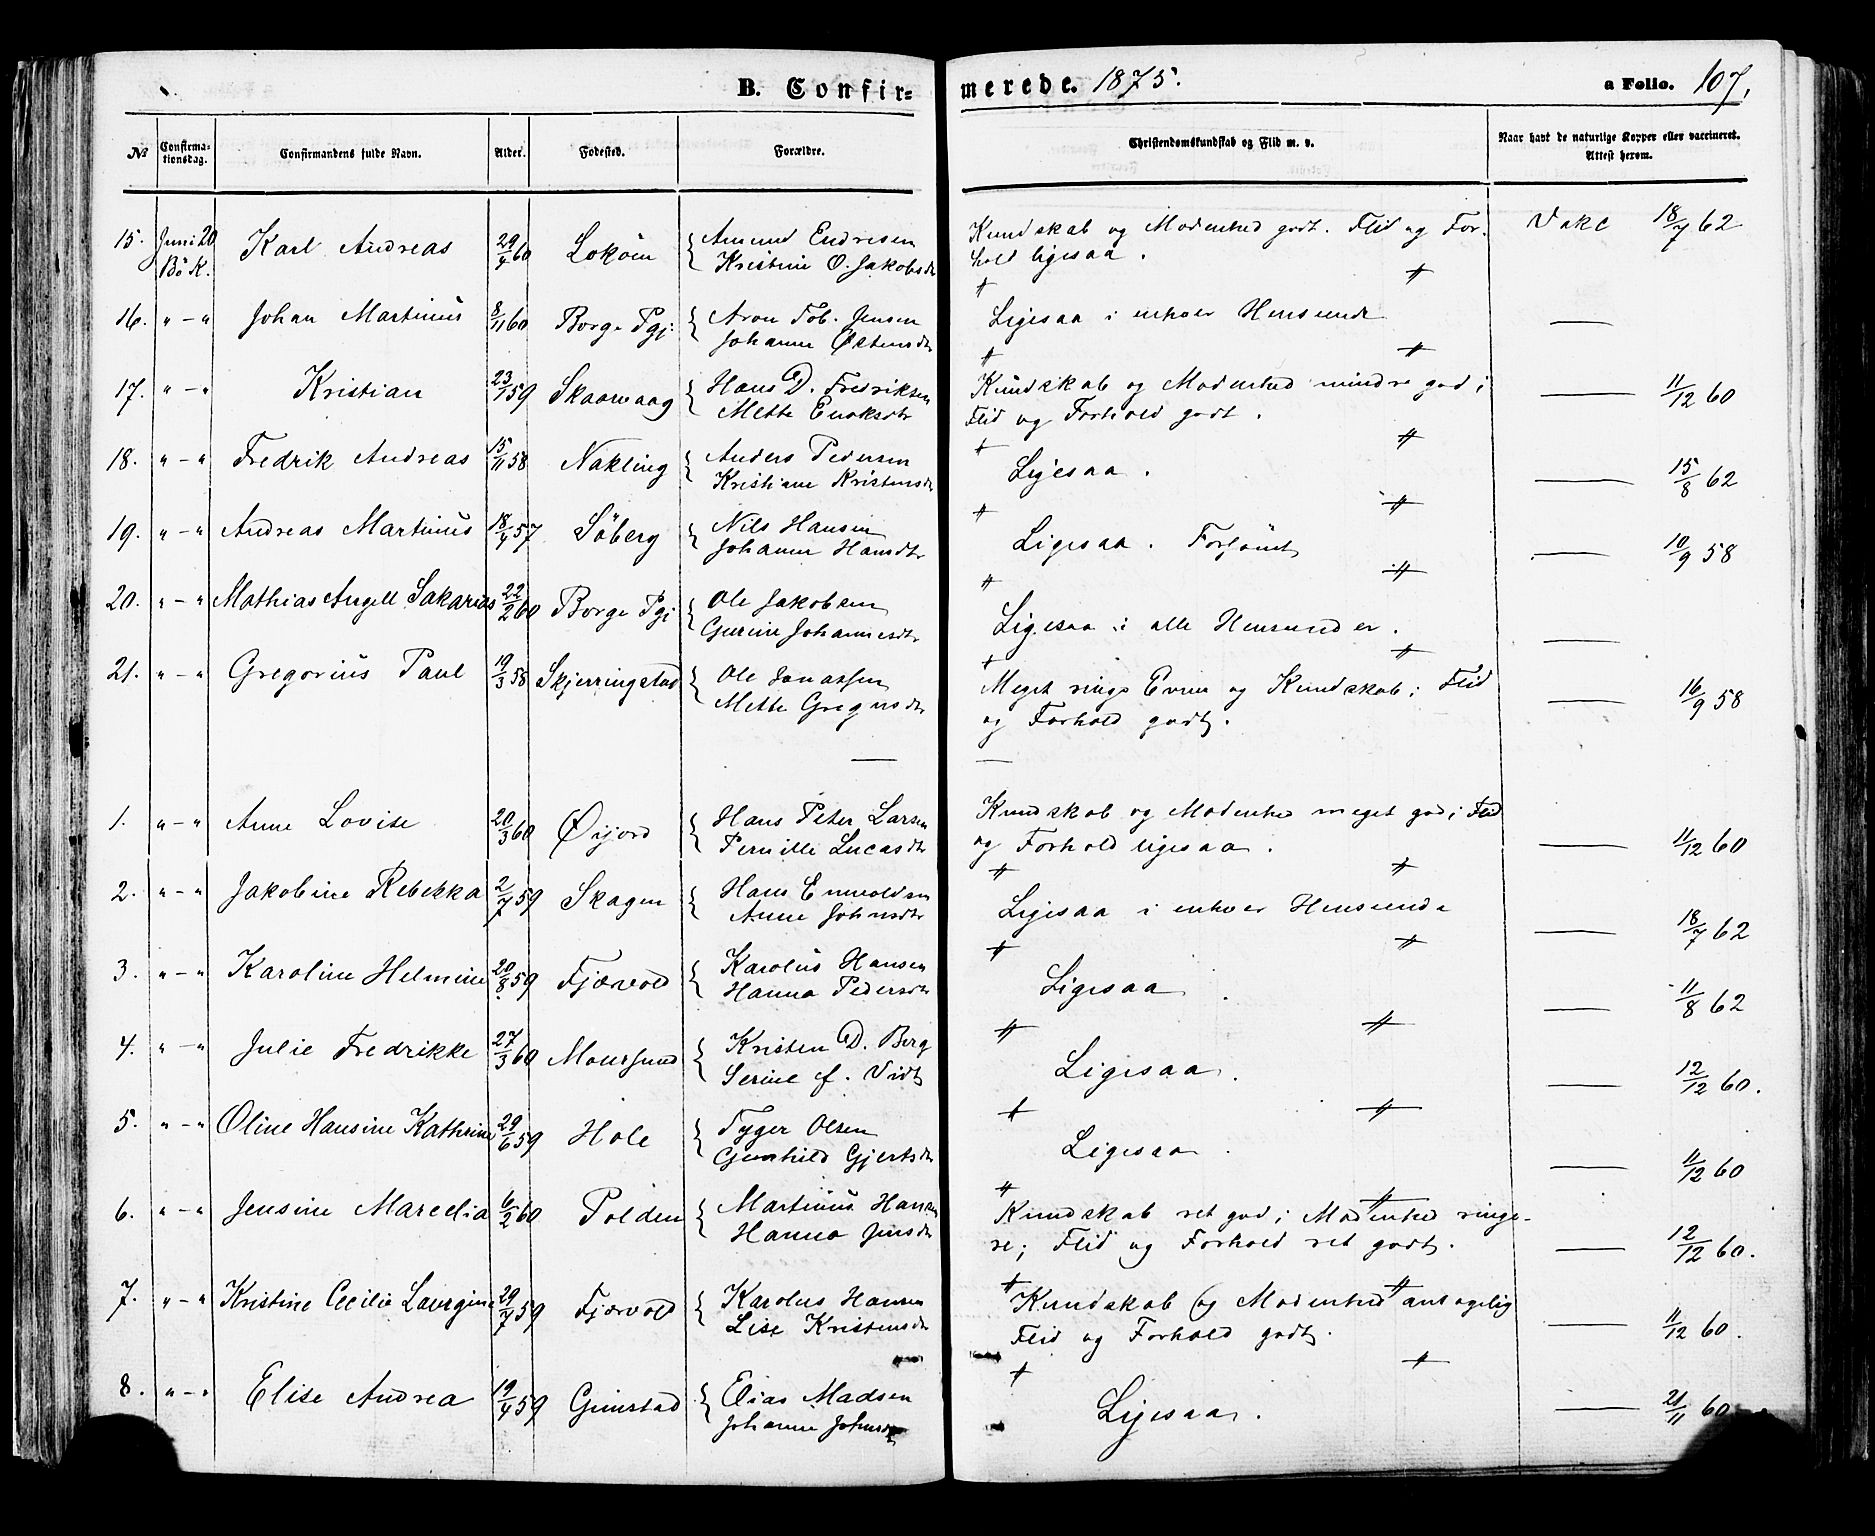 B. Confir= merede. 1875. a Folio. 107.
No Confirma-tionsdag. Confirmandens fulde Navn. Alder. Fødested. Forældre. Christendomskundskab og Flid m. v. Naar havt de naturlige Kopper eller vaccineret. Attest herom.
15. Juni 20 Karl Andreas 29/4 60 Lokøen { Amund Endresen Kundskab og Modenhed godt. Flid og For- Vakc 18/7 62
Bö K. Kristine O. Jakobsdr hold ligesaa.
16. " — " Johan Martinus 8/11 60 Borge Pgj. { Aron Tob. Jensen Ligesaa i enhver Henseende —
Johanne Østensdr
17. " — " Kristian 23/1 59 Skaarvaag { Hans D. Fredriksen Kundskab og Modenhed mindre god; — 11/12 60
Mette Enoksdtr Flid og Forhold godt.
18. " — " Fredrik Andreas 15/11 58 Nøkling { Anders Pedersen Ligesaa. — 15/8 62
Kristiane Kristensdr
19. " — " Andreas Martinus 18/4 57 Söberg { Nils Hansen Ligesaa. — 10/9 58
Johanna Hansdtr
20. " — " Mathias Angell Sakarias 22/2 60 Borge Pgj { Ole Jakobsen Ligesaa i alle Henseender. —
Gurine Johannesdtr
21. " — " Gregorius Paul 19/3 58 Skjerringstad { Ole Jonassen Meget ringe Evne og Kundskab; Flid — 16/9 58
Mette Gregusdtr og Forhold godt.
1. " — " Anne Lovise 20/3 60 Øijord { Hans Peter Larsen Kundskab og Modenhed meget god; Flid — 11/12 60
Pernille Lucasdtr og Forhold ligesaa.
2. " — " Jakobine Rebekka 2/7 59 Skagen { Hans Enevoldsen Ligesaa i enhver Henseende — 18/7 62
Anne Johnsdtr
3. " — " Karoline Helmine 20/8 59 Fjærvold { Karolus Hansen Ligesaa. — 11/8 62
Hanna Pedersdtr
4. " — " Julie Fredrikke 27/3 60 Moursund { Kristen D. Berg Ligesaa. — 12/12 60.
Serine f. Vidt
5. " — " Oline Hansine Kathrine 29/6 59 Hole { Tyger Olsen Ligesaa. — 11/12 60
Gunhild Gjertsdr
6. " — " Jensine Marcelia 6/2 60 Polden { Martinus Hansen Kundskab ret god; Modenhed ringe- — 12/12 60.
Hanna Jensdtr re; Flid og Forhold ret godt.
7. " — " Kristine Cecilie Lavrgine 29/7 59 Fjærvold { Karolus Hansen Kundskab og Modenhed antagelig — 11/12 60.
Lise Kristensdr Flid og Forhold godt.
8. " — " Elise Andrea 19/4 59 Gimstad { Elias Madsen Ligesaa. — 21/11 60
Johanne Johnsd